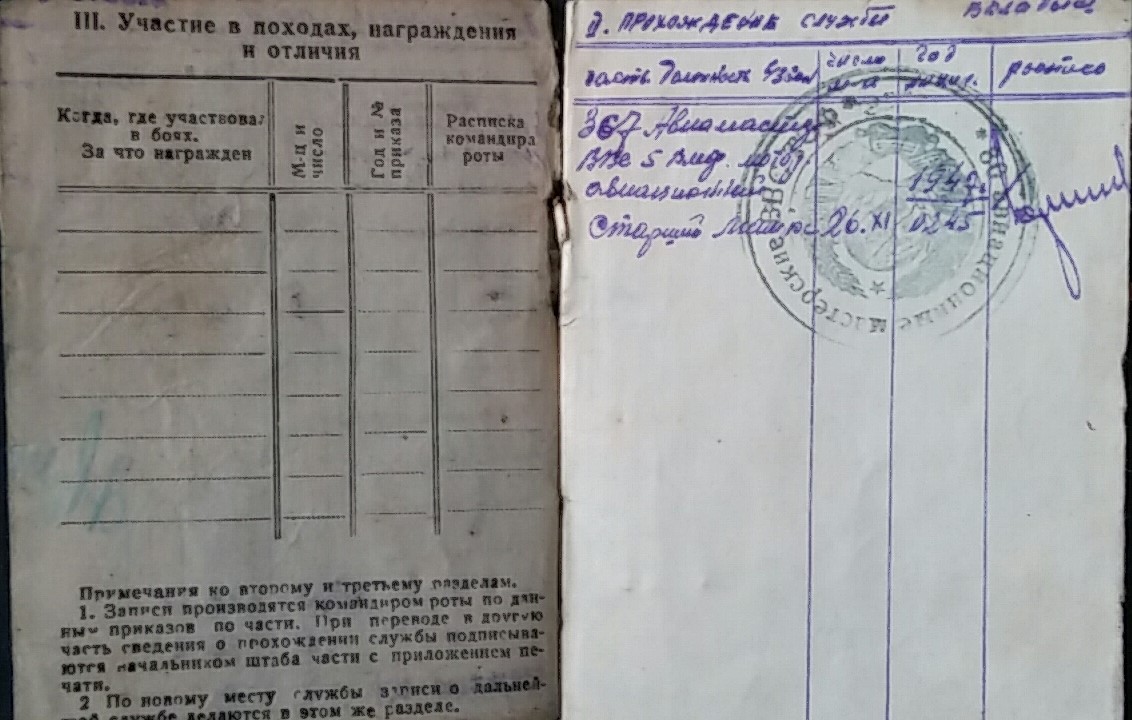 III. Участие в походах, награждения
и отличия
Когда, где участвовал
в боях.
За что награжден
М-ц и
число
Год и №
приказа
Расписка
командира
роты
Примечания ко второму и третьему разделам.
1. Записи производятся командиром роты по дан-
ным приказов по части. При переводе в другую
часть сведения о прохождении службы подписыва-
ются начальником штаба части с приложением пе-
чати.
2 По новому месту службы записи о дальней-
шей службе делаются в этом же разделе.
Вкладыш
II. ПРОХОЖДЕНИЕ СЛУЖБЫ
часть должность
число
м-ц
год
роспись
367 Авиамастер
ВВС 5 Вмф.
авиационный
1949г.
Старший 26.XI 0245
авиационные мастерские ВВС